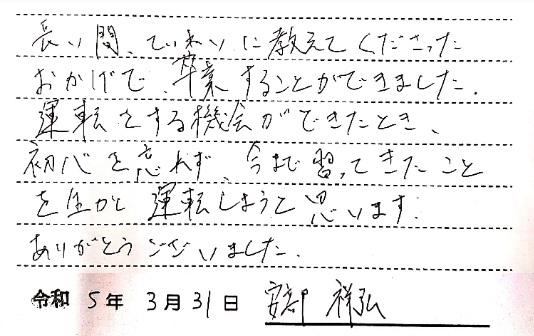 長い間、ていねいに教えてくださった
おかげで、卒業することができました。
運転をする機会ができたとき、
初心を忘れず、今まで習ってきたこと
を生かし運転しようと思います。
ありがとうございました。
令和 5年 3月 31日 安部 祥弘